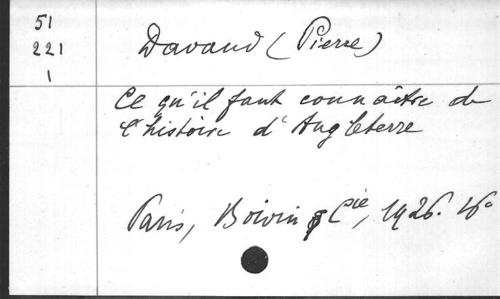 51
221
1
Davaud (Pierre)
Ce qu'il faut connaître de
l'histoire d'Angleterre
Paris, Boivin & Cie, 1926. 16°